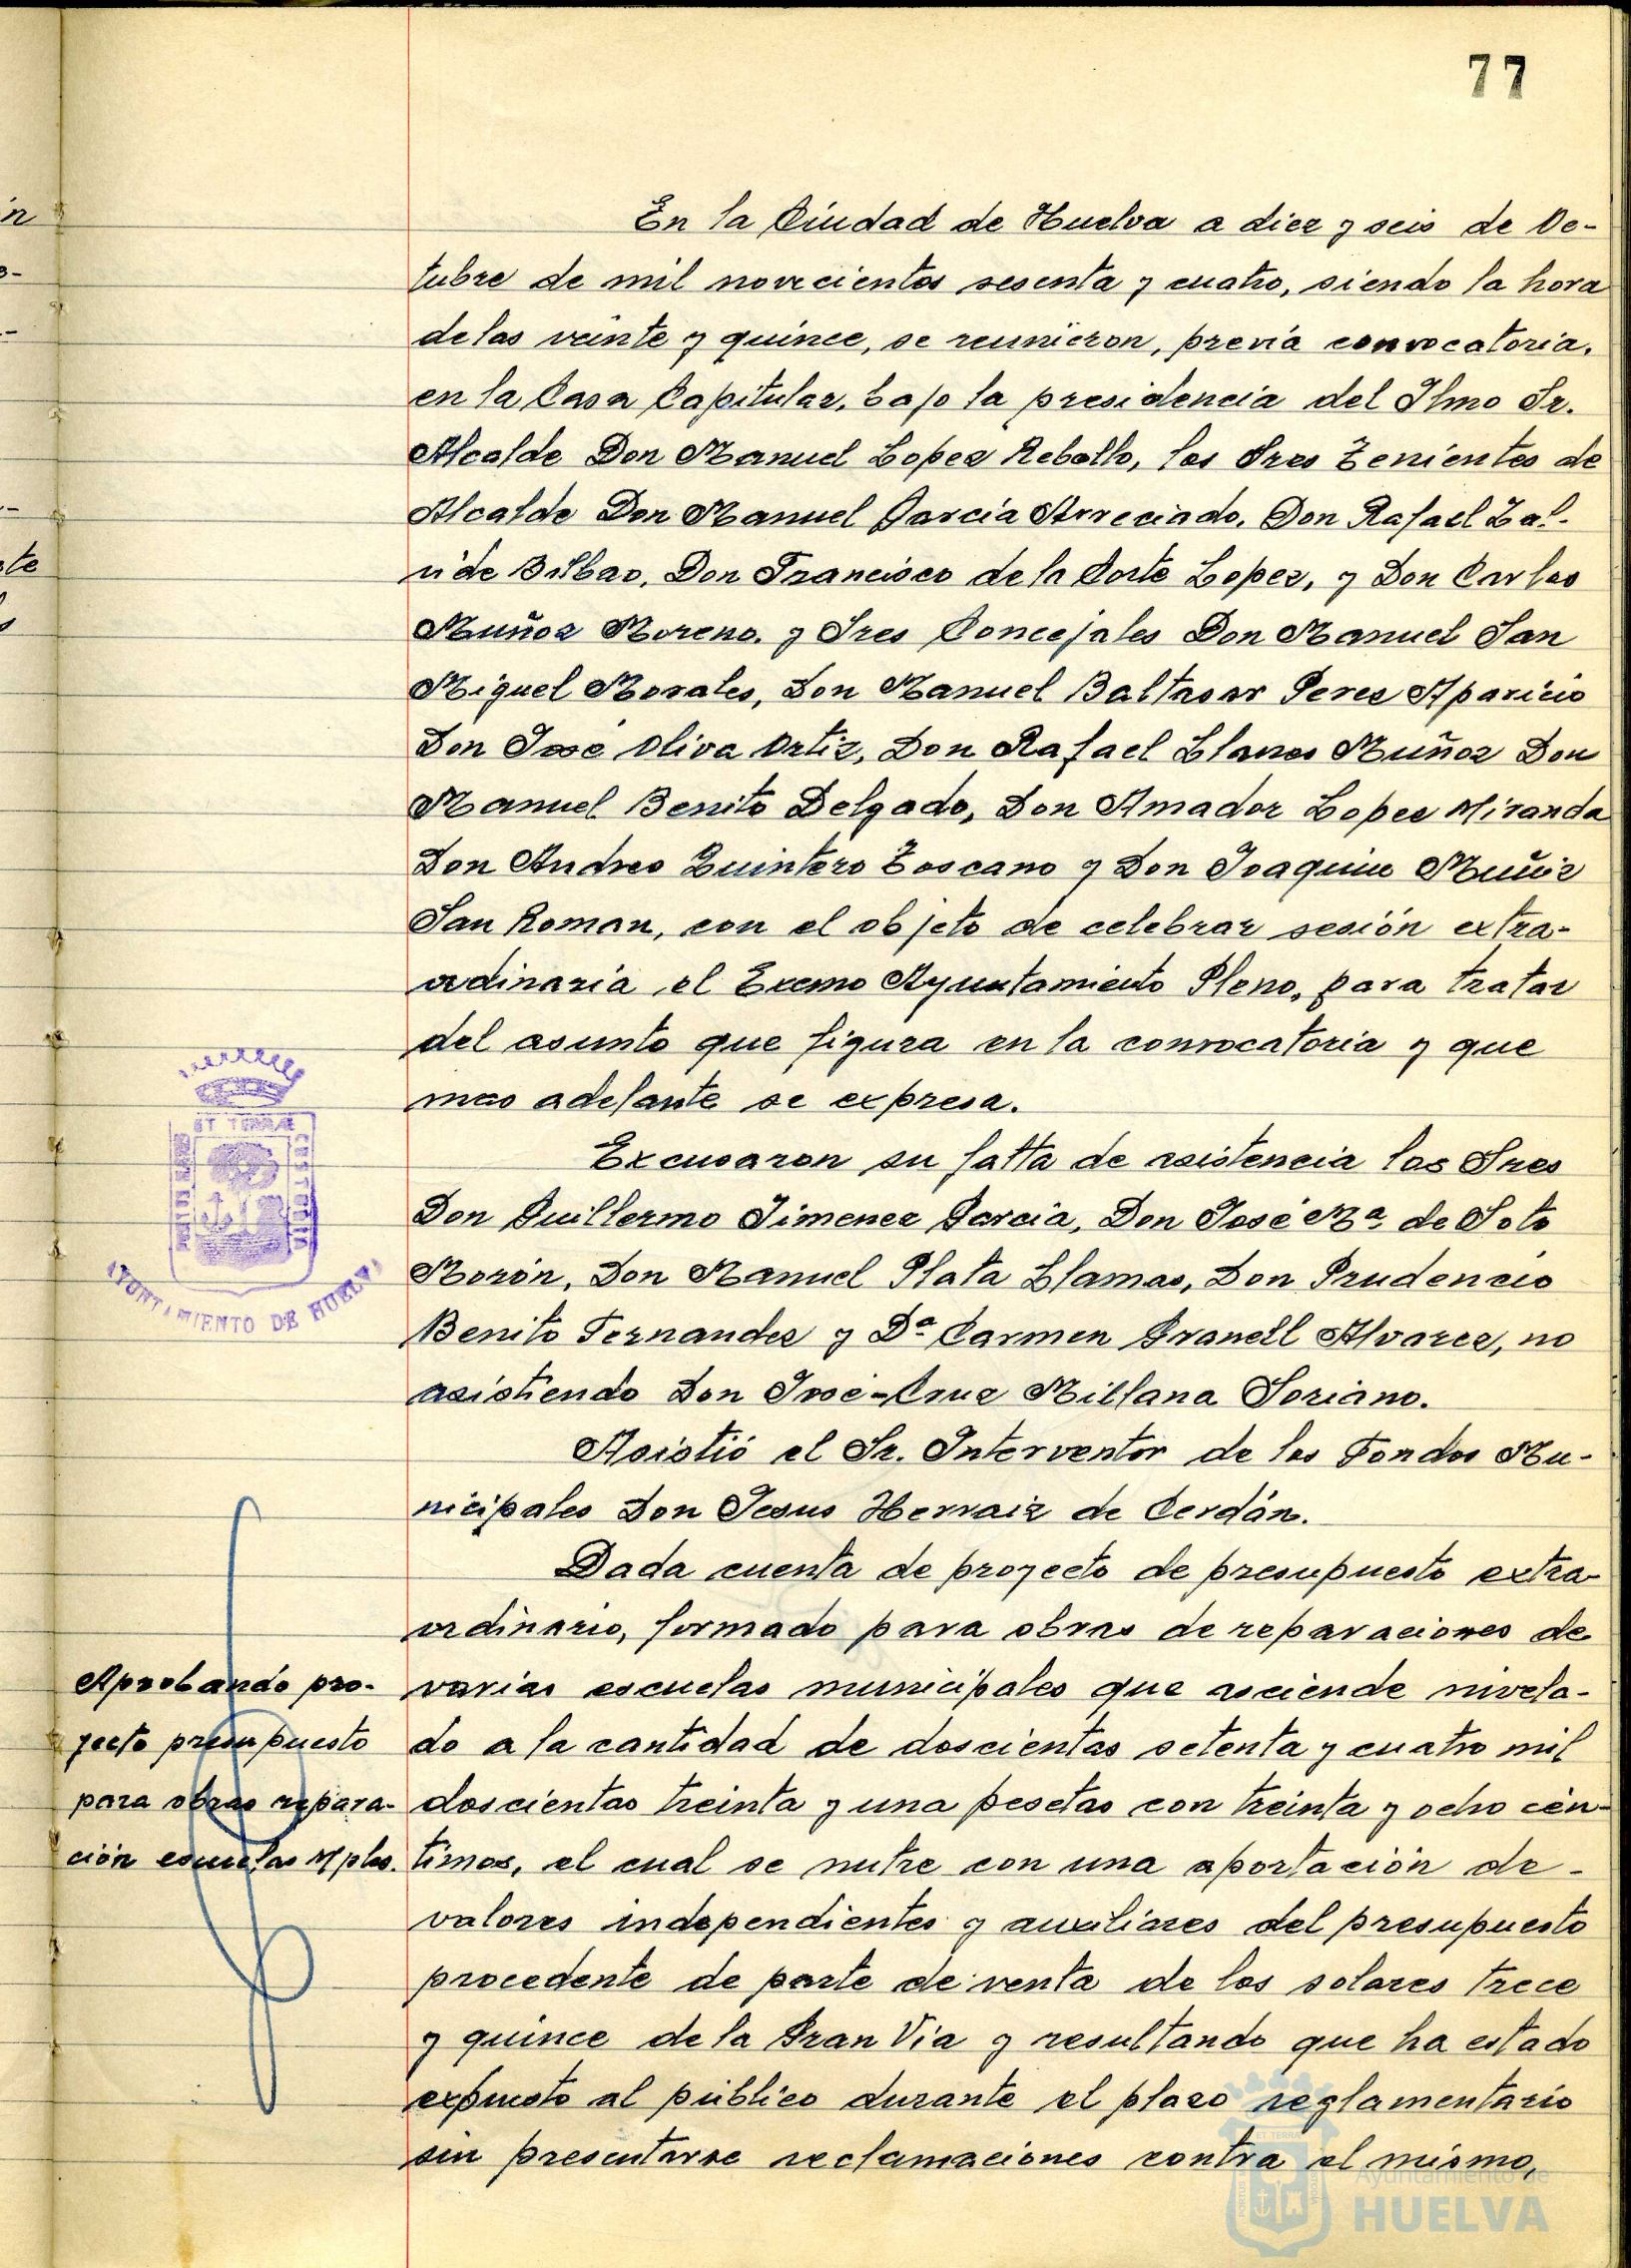 77
En la Ciudad de Huelva a diez y seis de Oc-
tubre de mil novecientos sesenta y cuatro, siendo la hora
de las veinte y quince, se reunieron, previa convocatoria,
en la Casa Capitular, bajo la presidencia del Ilmo Sr.
Alcalde Don Manuel Lopez Rebollo, los Sres Tenientes de
Alcalde Don Manuel Garcia Arreciado, Don Rafael Zal-
vide Bilbao, Don Francisco de la Corte Lopez, y Don Carlos
Muñoz Moreno, y Sres Concejales Don Manuel San
Miguel Morales, Don Manuel Baltasar Perez Aparicio
Don José Oliva Ortiz, Don Rafael Llanes Muñoz Don
Manuel Benito Delgado, Don Amador Lopez Miranda
Don Andres Quintero Toscano y Don Joaquin Muñiz
San Roman, con el objeto de celebrar sesión extra-
ordinaria el Excmo Ayuntamiento Pleno, para tratar
del asunto que figura en la convocatoria y que
mas adelante se expresa.
Excusaron su falta de asistencia los Sres
Don Guillermo Jimenez Garcia, Don José Mª de Soto
Morón, Don Manuel Plata Llamas, Don Prudencio
Benito Fernandez y Dª Carmen Granell Alvarez, no
asistiendo Don José-Cruz Millana Soriano.
Asistió el Sr. Interventor de los Fondos Mu-
nicipales Don Jesus Hervaiz de Cerdán.
Dada cuenta de proyecto de presupuesto extra-
ordinario, formado para obras de reparaciones de
varias escuelas municipales que asciende nivela-
do a la cantidad de doscientas setenta y cuatro mil
doscientas treinta y una pesetas con treinta y ocho cén-
timos, el cual se nutre con una aportación de-
valores independientes y auxiliares del presupuesto
procedente de parte de venta de los solares trece
y quince de la Gran Via y resultando que ha estado
expuesto al público durante el plazo reglamentario
sin presentarse reclamaciones contra el mismo,
Aprobando pro-
yecto presupuesto
para obras repara-
ción escuelas Mples.
ET TERRÆ
AYUNTAMIENTO DE HUELVA
Ayuntamiento de
HUELVA